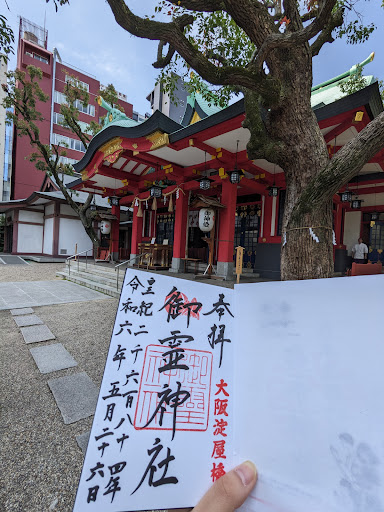 奉拝
大阪淀屋橋
御霊神社
皇紀二千六百八十四年
令和六年五月二十六日